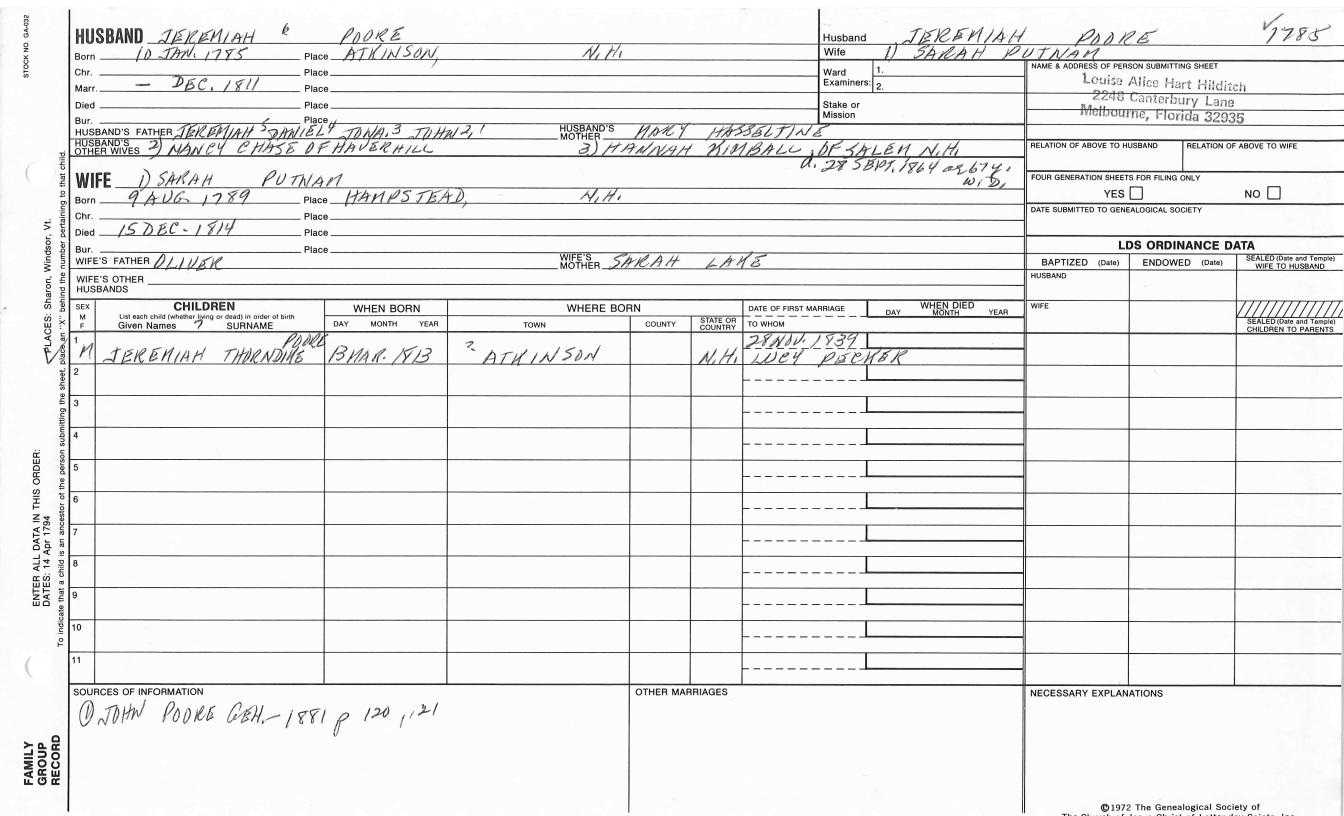 STOCK NO. GA-032
HUSBAND JEREMIAH 6 POORE
Born 10 JAN. 1785 Place ATKINSON, N.H.
Chr. Place
Marr. — DEC. 1811 Place
Died Place
Bur. Place
HUSBAND'S FATHER JEREMIAH 5 DANIEL 4 JONA. 3 JOHN 2, 1 HUSBAND'S MOTHER MARY HASSELTINE
HUSBAND'S OTHER WIVES 2) NANCY CHASE OF HAVERHILL 3) HANNAH KIMBALL, OF SALEM N.H.
d. 28 SEPT. 1864 ae 67 y.
W.D.
WIFE 1) SARAH PUTNAM
Born 9 AUG 1789 Place HAMPSTEAD, N.H.
Chr. Place
Died 15 DEC - 1814 Place
Bur. Place
WIFE'S FATHER OLIVER WIFE'S MOTHER SARAH LAKE
WIFE'S OTHER HUSBANDS
Husband JEREMIAH POORE √1785
Wife 1) SARAH PUTNAM
Ward Examiners: 1.
2.
Stake or Mission
NAME & ADDRESS OF PERSON SUBMITTING SHEET
Louise Alice Hart Hilditch
2246 Canterbury Lane
Melbourne, Florida 32935
RELATION OF ABOVE TO HUSBAND RELATION OF ABOVE TO WIFE
FOUR GENERATION SHEETS FOR FILING ONLY
YES NO
DATE SUBMITTED TO GENEALOGICAL SOCIETY
LDS ORDINANCE DATA
BAPTIZED (Date) ENDOWED (Date) SEALED (Date and Temple) WIFE TO HUSBAND
HUSBAND
WIFE
SEALED (Date and Temple) CHILDREN TO PARENTS
SEX M F CHILDREN WHEN BORN WHERE BORN DATE OF FIRST MARRIAGE WHEN DIED
List each child (whether living or dead) in order of birth
Given Names 7 SURNAME DAY MONTH YEAR TOWN COUNTY STATE OR COUNTRY TO WHOM DAY MONTH YEAR
1 POORE 28 NOV. 1839
M JEREMIAH THORNDIKE 13 MAR. 1813 ? ATKINSON N.H. LUCY PECKER
2
3
4
5
6
7
8
9
10
11
SOURCES OF INFORMATION OTHER MARRIAGES NECESSARY EXPLANATIONS
① JOHN POORE GEN. - 1881 p 120, 121
PLACES: Sharon, Windsor, Vt.
ENTER ALL DATA IN THIS ORDER:
DATES: 14 Apr 1794
To indicate that a child is an ancestor of the person submitting the sheet, place an "X" behind the number pertaining to that child.
FAMILY
GROUP
RECORD
©1972 The Genealogical Society of